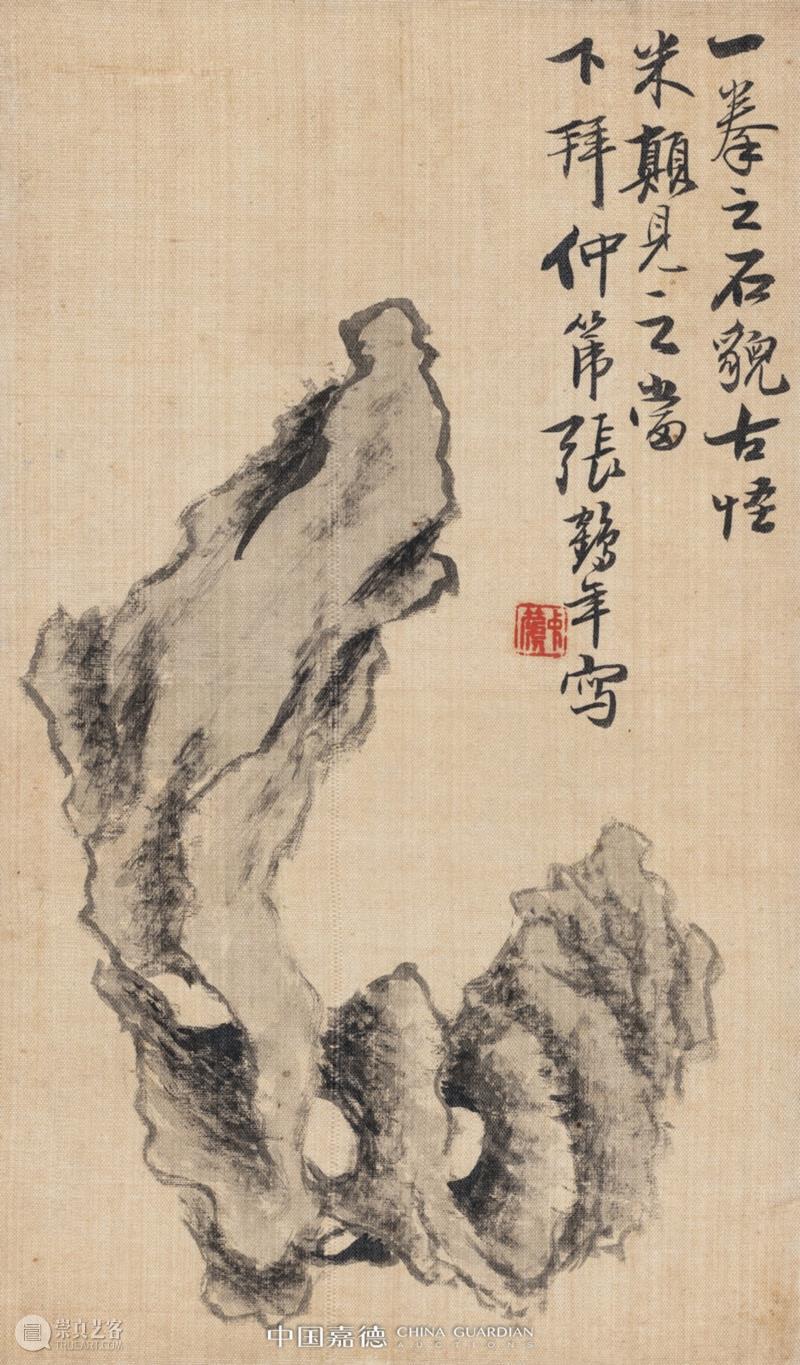 一拳之石貌古怪
米顛見之當
下拜仲箎張鶴年寫
崇真艺客
TRUEART.COM
中国嘉德 CHINA GUARDIAN
AUCTIONS